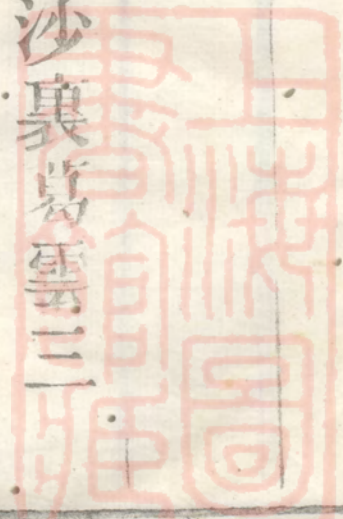 上海圖
書館藏
沙裏葛雲三